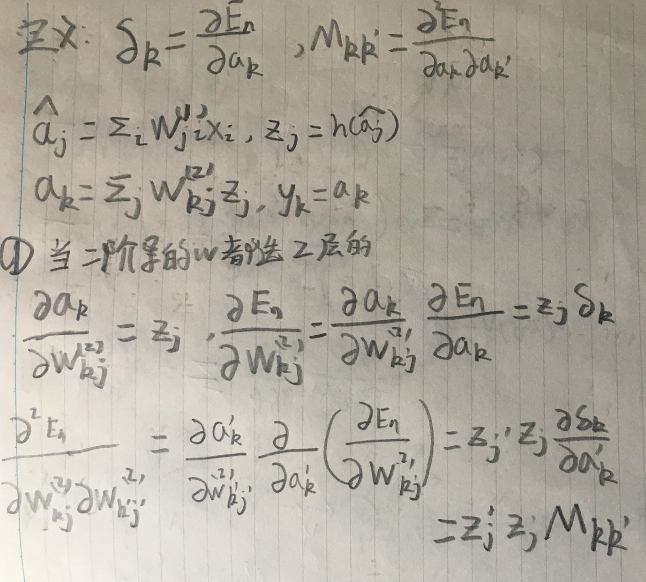 定义: δₖ = ∂Eₙ/∂aₖ , Mₖₖ' = ∂²Eₙ/∂aₖ∂aₖ'
âⱼ = Σᵢ Wⱼᵢ⁽¹⁾xᵢ , zⱼ = h(âⱼ)
aₖ = Σⱼ Wₖⱼ⁽²⁾ zⱼ , yₖ = aₖ
① 当二阶导的w都是2层的
∂aₖ/∂Wₖⱼ⁽²⁾ = zⱼ , ∂Eₙ/∂Wₖⱼ⁽²⁾ = ∂aₖ/∂Wₖⱼ⁽²⁾ ∂Eₙ/∂aₖ = zⱼ δₖ
∂²Eₙ/∂Wₖⱼ⁽²⁾∂Wₖ'ⱼ'⁽²⁾ = ∂aₖ'/∂Wₖ'ⱼ'⁽²⁾ ∂/∂aₖ' (∂Eₙ/∂Wₖⱼ⁽²⁾) = zⱼ' zⱼ ∂δₖ/∂aₖ'
= zⱼ' zⱼ Mₖₖ'